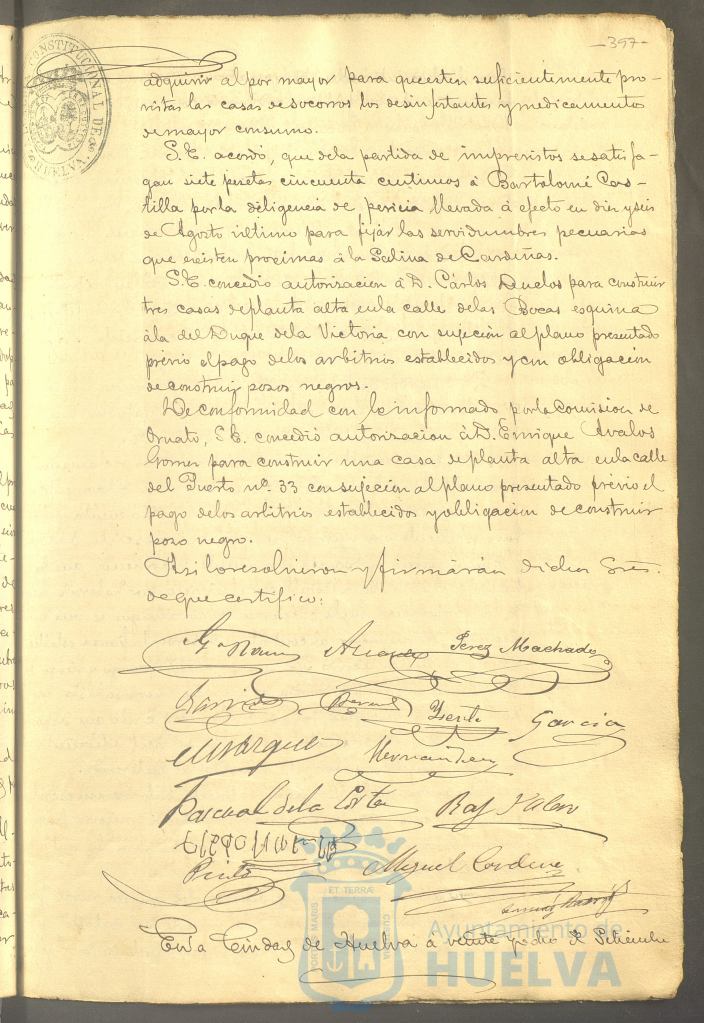 -397-
CONSTITUCIONAL DE
HUELVA
adquirir al por mayor para que esten suficientemente pro-
vistas las casas de socorros los desinfectantes y medicamentos
de mayor consumo.
S.E. acordó, que de la partida de imprevistos se satisfa-
gan siete pesetas cincuenta centimos á Bartolomé Cas-
tilla por la diligencia de pericia llevada á efecto en diez y seis
de Agosto último para fijar las servidumbres pecuarias
que existen proximas á la Salina de Cardeñas.
S.E. concedió autorizacion á D. Cárlos Duelos para construir
tres casas de planta alta en la calle de las Bocas esquina
á la del Duque de la Victoria con sujeción al plano presentado
prévio el pago de los arbitrios establecidos y con obligación
de construir pozos negros.
De conformidad con lo informado por la Comision de
Ornato, S.E. concedió autorizacion á D. Enrique Avalos
Gomez para construir una casa de planta alta en la calle
del Puerto nº. 33 con sujeción al plano presentado prévio el
pago de los arbitrios establecidos y obligacion de construir
pozo negro.
Asi lo resolvieron y firmarán dichos Sres.
de que certifico:
Perez Machado
Garrido Bernal Garcia
Marquez Hernandez
Pascual de la Corta
Prieto Miguel Cordero
En la Ciudad de Huelva á veinte y dos de Setiembre
PORTUS MARIS ET TERRÆ CUSTODIA
Ayuntamiento de
HUELVA